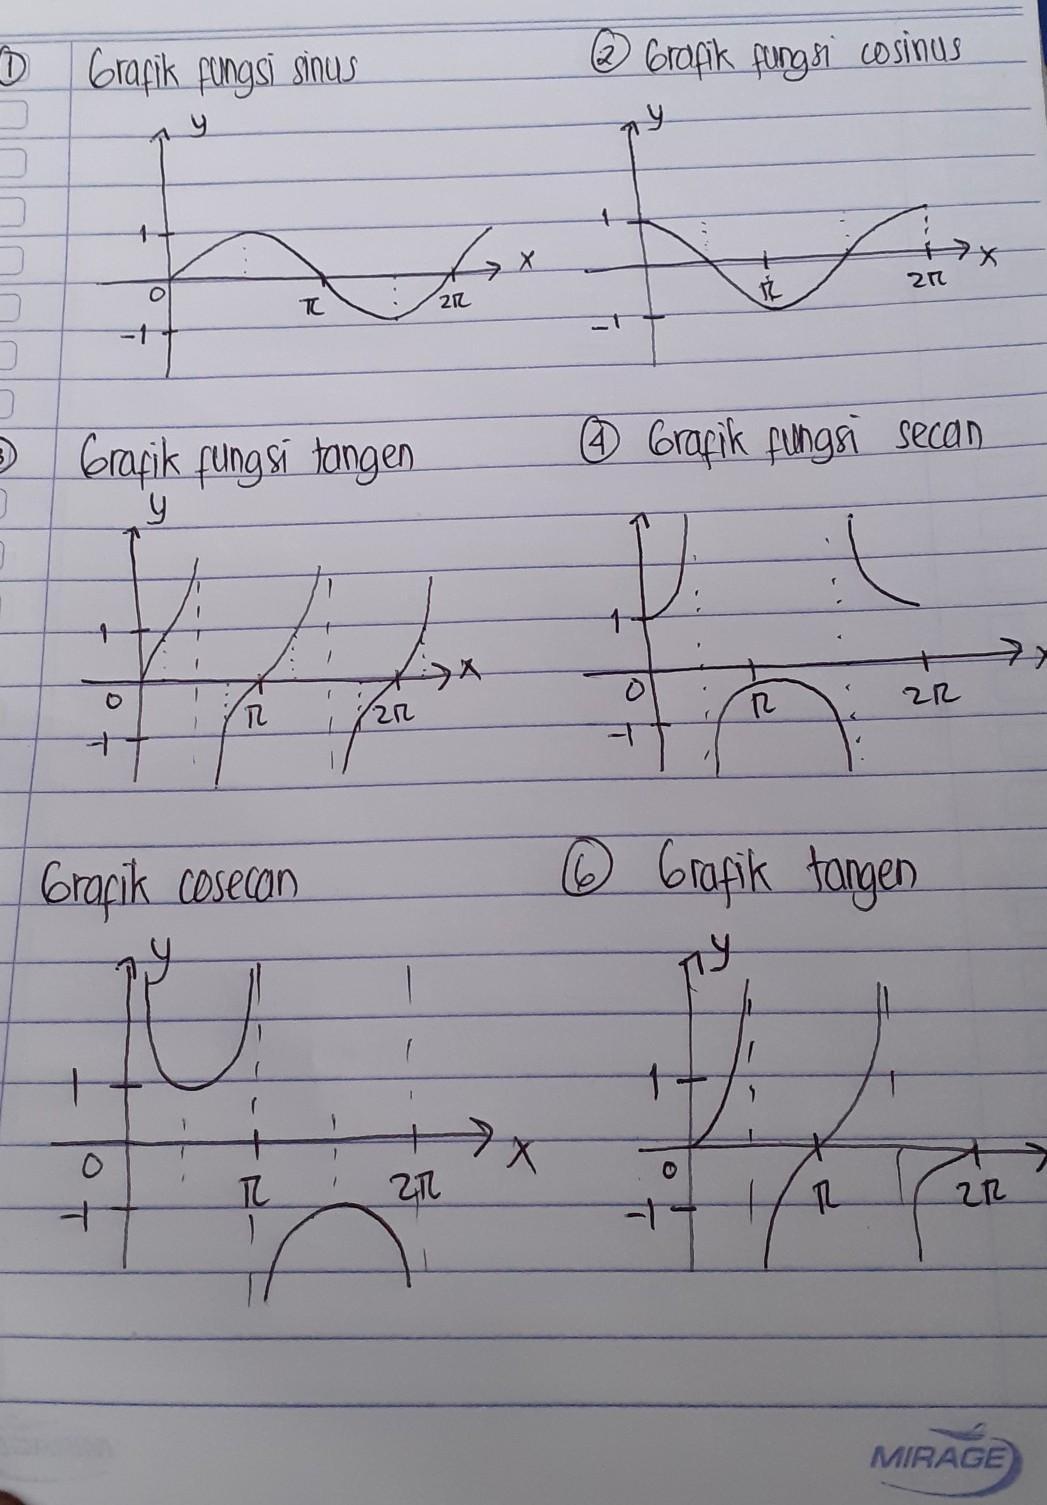 ① Grafik fungsi sinus
y
1
0
π
2π
x
-1
② Grafik fungsi cosinus
y
1
π
2π
x
-1
Grafik fungsi tangen
y
1
0
π
2π
x
-1
④ Grafik fungsi secan
1
0
π
2π
x
-1
Grafik cosecan
y
1
0
π
2π
x
-1
⑥ Grafik tangen
y
1
0
π
2π
-1
MIRAGE